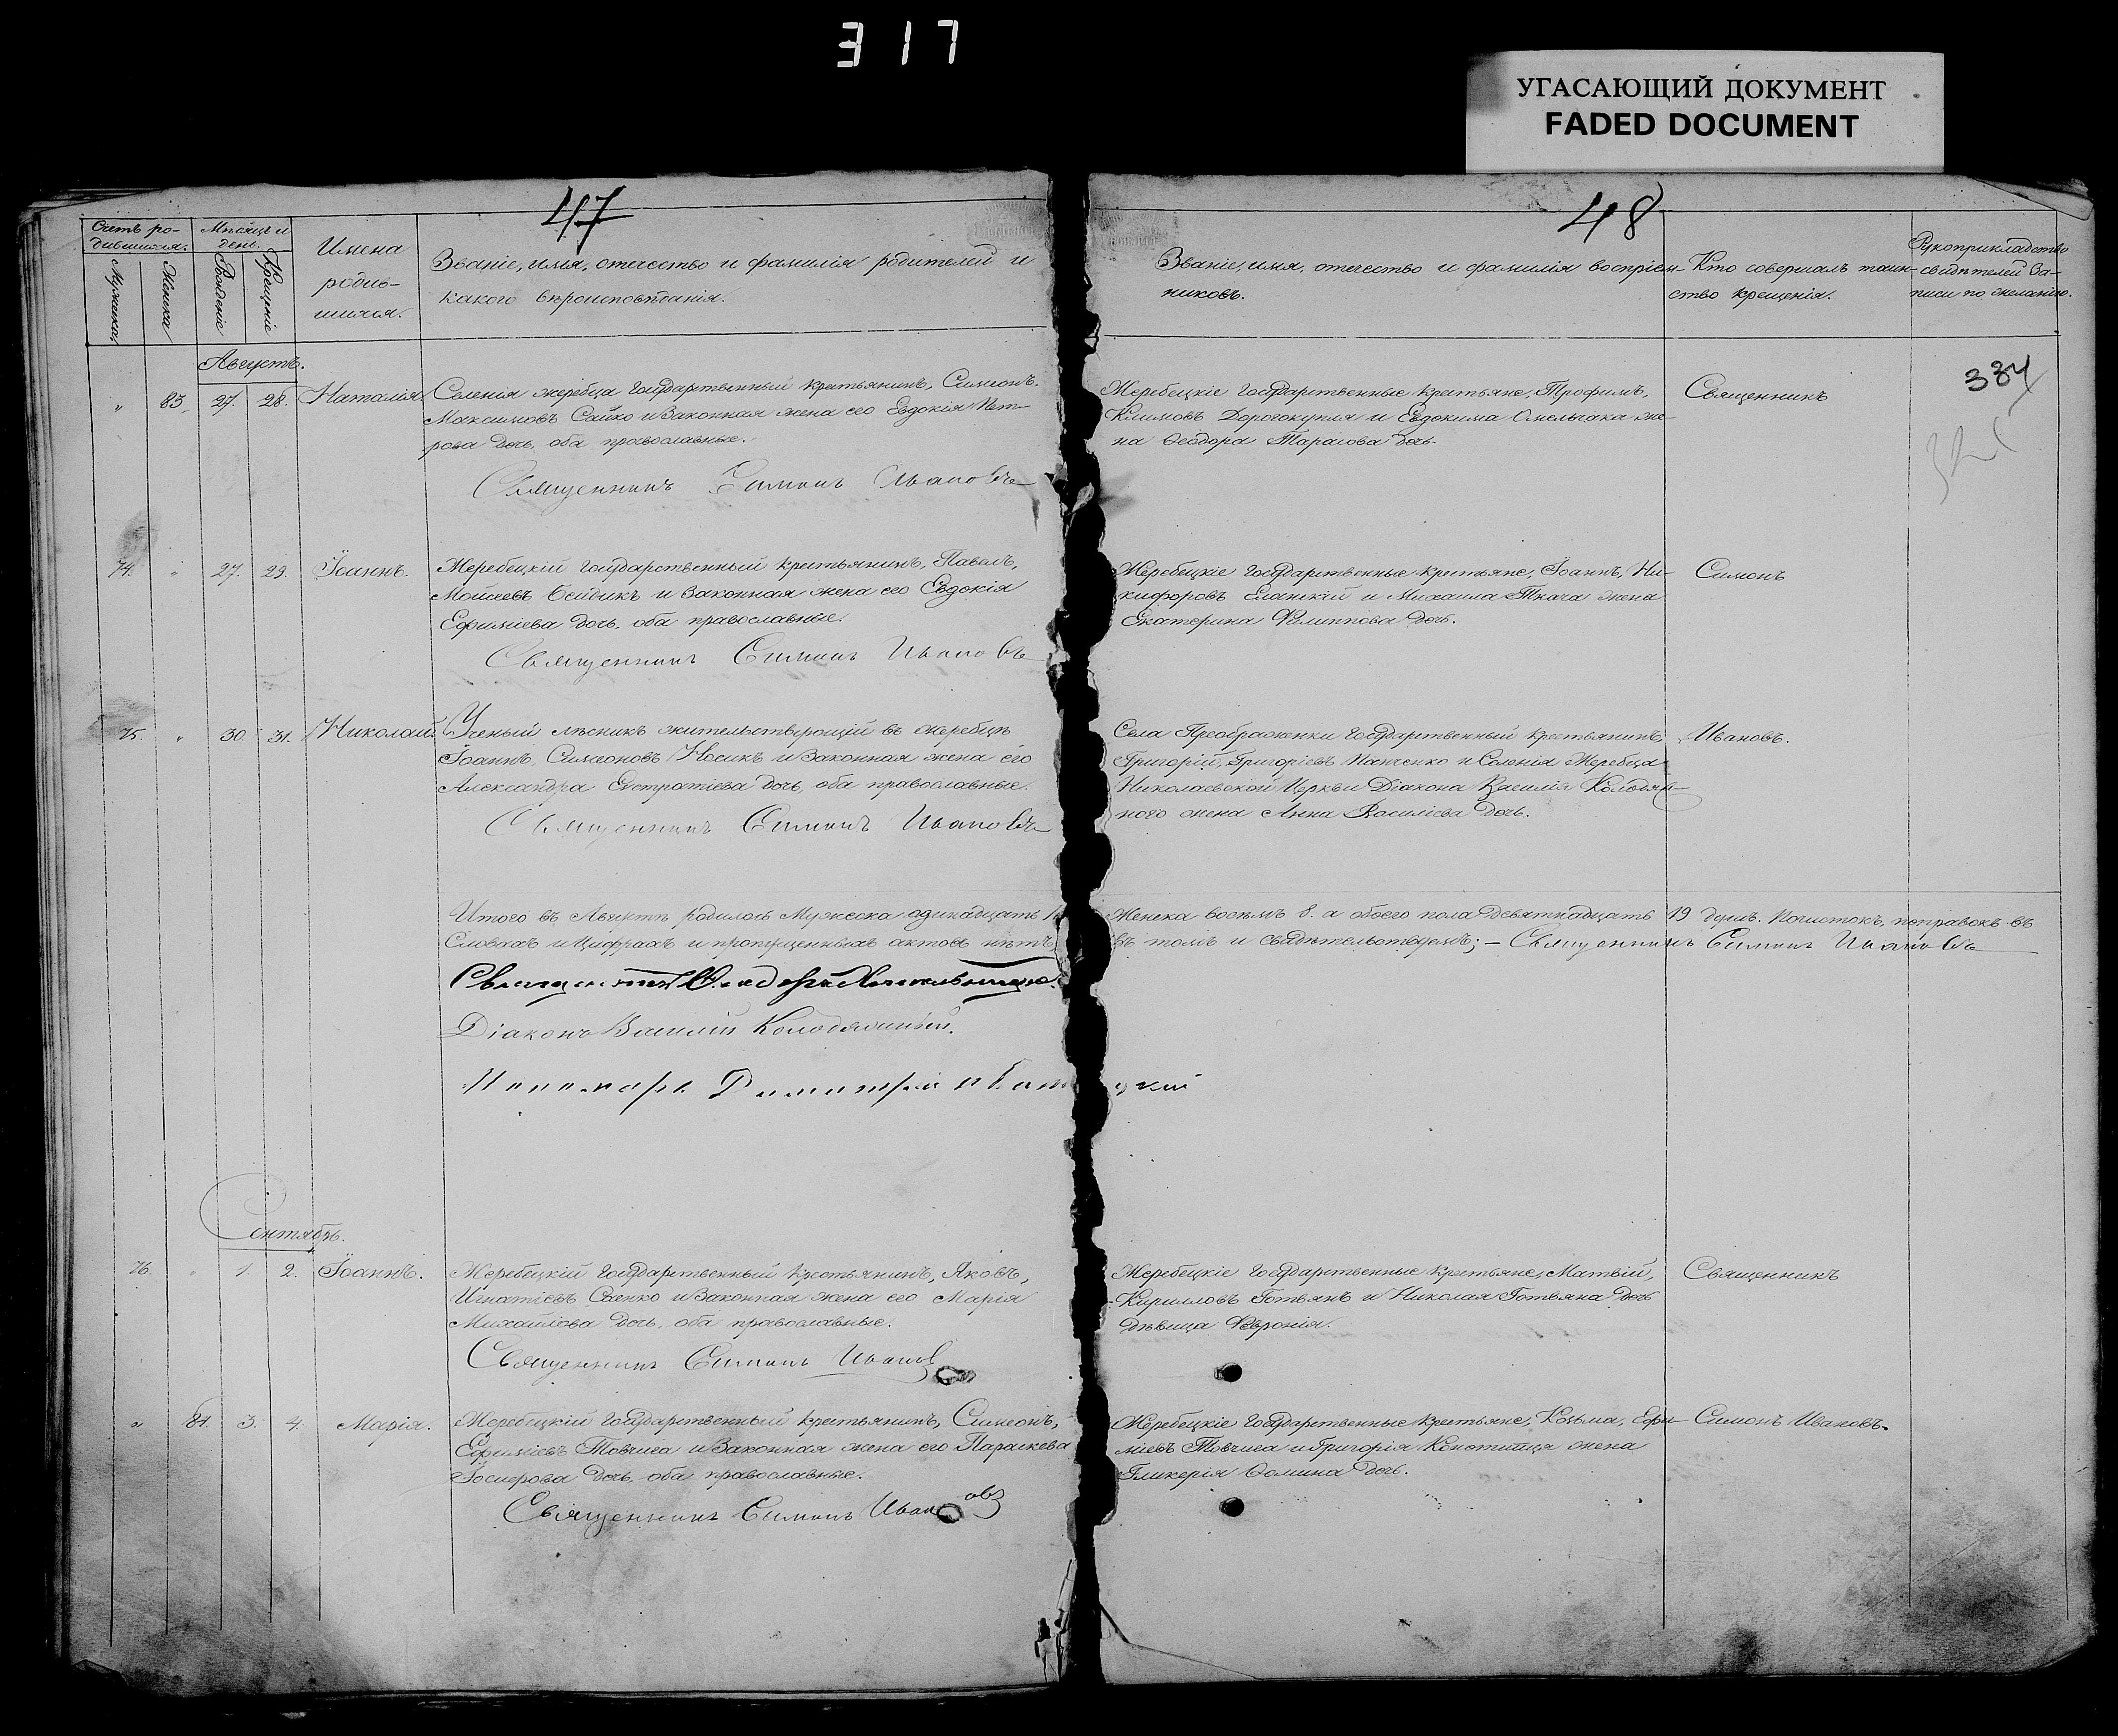 317
УГАСАЮЩИЙ ДОКУМЕНТ
FADED DOCUMENT
47
Счетъ ро-
дившихся.
Мѣсяцъ и
день.
Мужеска
Женска
Рожденіе
Крещеніе
Имена
родив-
шихся.
Званіе, имя, отчество и фамилія родителей и
какого вѣроисповѣданія.
Августъ.
" 83. 27. 28. Наталія
Селенія жеребца Государственный крестьянинъ, Симеонъ,
Максимовъ Сайко и законная жена его Евдокія Пет-
рова дочь, оба православные.
Священникъ Симонъ Ивановъ
74. " 27. 29. Іоаннъ.
Жеребецкій Государственный крестьянинъ, Павелъ,
Моисеевъ и законная жена его Евдокія
Ефиміева дочь, оба православные.
Священникъ Симонъ Ивановъ
75. " 30. 31. Николай.
Ученый лѣсникъ жительствующій въ жеребцѣ
Іоаннъ, Симеоновъ Носикъ и законная жена его
Александра Евстратіева дочь, оба православные.
Священникъ Симонъ Ивановъ
Итого въ Августѣ родилось Мужеска одинадцать
Словахъ и Цифрахъ и пропущенныхъ актовъ нѣтъ
Священникъ
Діаконъ Василій Колодяжный.
Пономарь Димитрій
Сентябрь.
76. " 1. 2. Іоаннъ.
Жеребецкій Государственный крестьянинъ, Яковъ,
Игнатіевъ и законная жена его Марія
Михайлова дочь, оба православные.
Священникъ Симонъ Ивановъ
" 84. 3. 4. Марія.
Жеребецкій Государственный крестьянинъ, Симеонъ,
Ефиміевъ Товчига и законная жена его Параскева
дочь, оба православные.
Священникъ Симонъ Ивановъ
48
Званіе, имя, отчество и фамилія воспріем-
никовъ.
Кто совершалъ таин-
ство крещенія.
Рукоприкладство
свидѣтелей за-
писи по желанію.
334
Жеребецкіе Государственные крестьяне, Трофимъ,
Климовъ Дорогокупля и Евдокима Омельчака же-
на Ѳеодора Тарасова дочь.
Священникъ
Жеребецкіе Государственные крестьяне, Іоаннъ, Ни-
кифоровъ Еланскій и Михаила Ткача жена
Екатерина Филиппова дочь.
Симонъ
Села Преображенки Государственный крестьянинъ,
Григорій, Григоріевъ Панченко и Селенія Жеребца
Николаевской Церкви Діакона Василія Колодяж-
ного жена Анна Василіева дочь.
Ивановъ.
Женска восемъ 8. а обоего пола девятнадцать 19 душъ. Почистокъ, поправокъ въ
въ томъ и свидѣтельствуемъ; – Священникъ Симонъ Ивановъ
Жеребецкіе Государственные крестьяне, Матвій,
Кирилловъ Готвянъ и Николая Готвяна дочь
дѣвица Февронія.
Священникъ
Жеребецкіе Государственные крестьяне, Козьма, Ефи-
міевъ Товчига и Григорія жена
Гликерія Ѳомина дочь.
Симонъ Ивановъ.